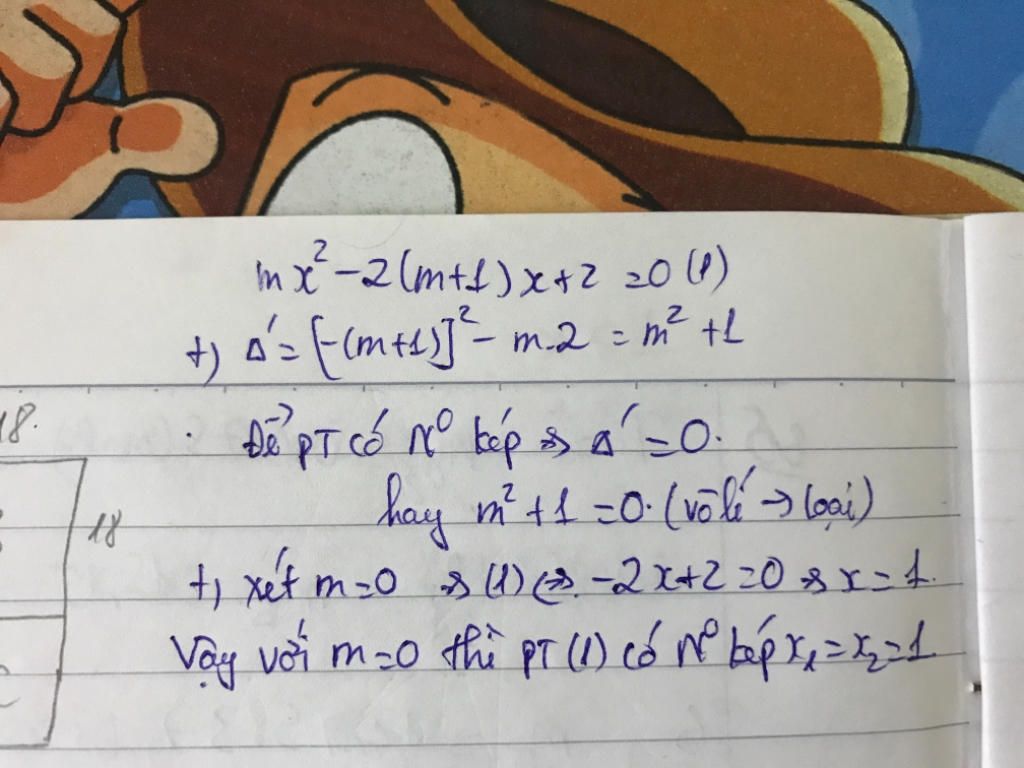 mx² - 2(m+1)x + 2 = 0 (1)
+) Δ' = [-(m+1)]² - m.2 = m² + 1
18.
Để PT có N⁰ kép ⇒ Δ' = 0.
hay m² + 1 = 0. (vô lí → loại)
18
+) xét m = 0 ⇒ (1) ⇔ -2x + 2 = 0 ⇒ x = 1.
Vậy với m = 0 thì PT (1) có N⁰ kép x₁ = x₂ = 1